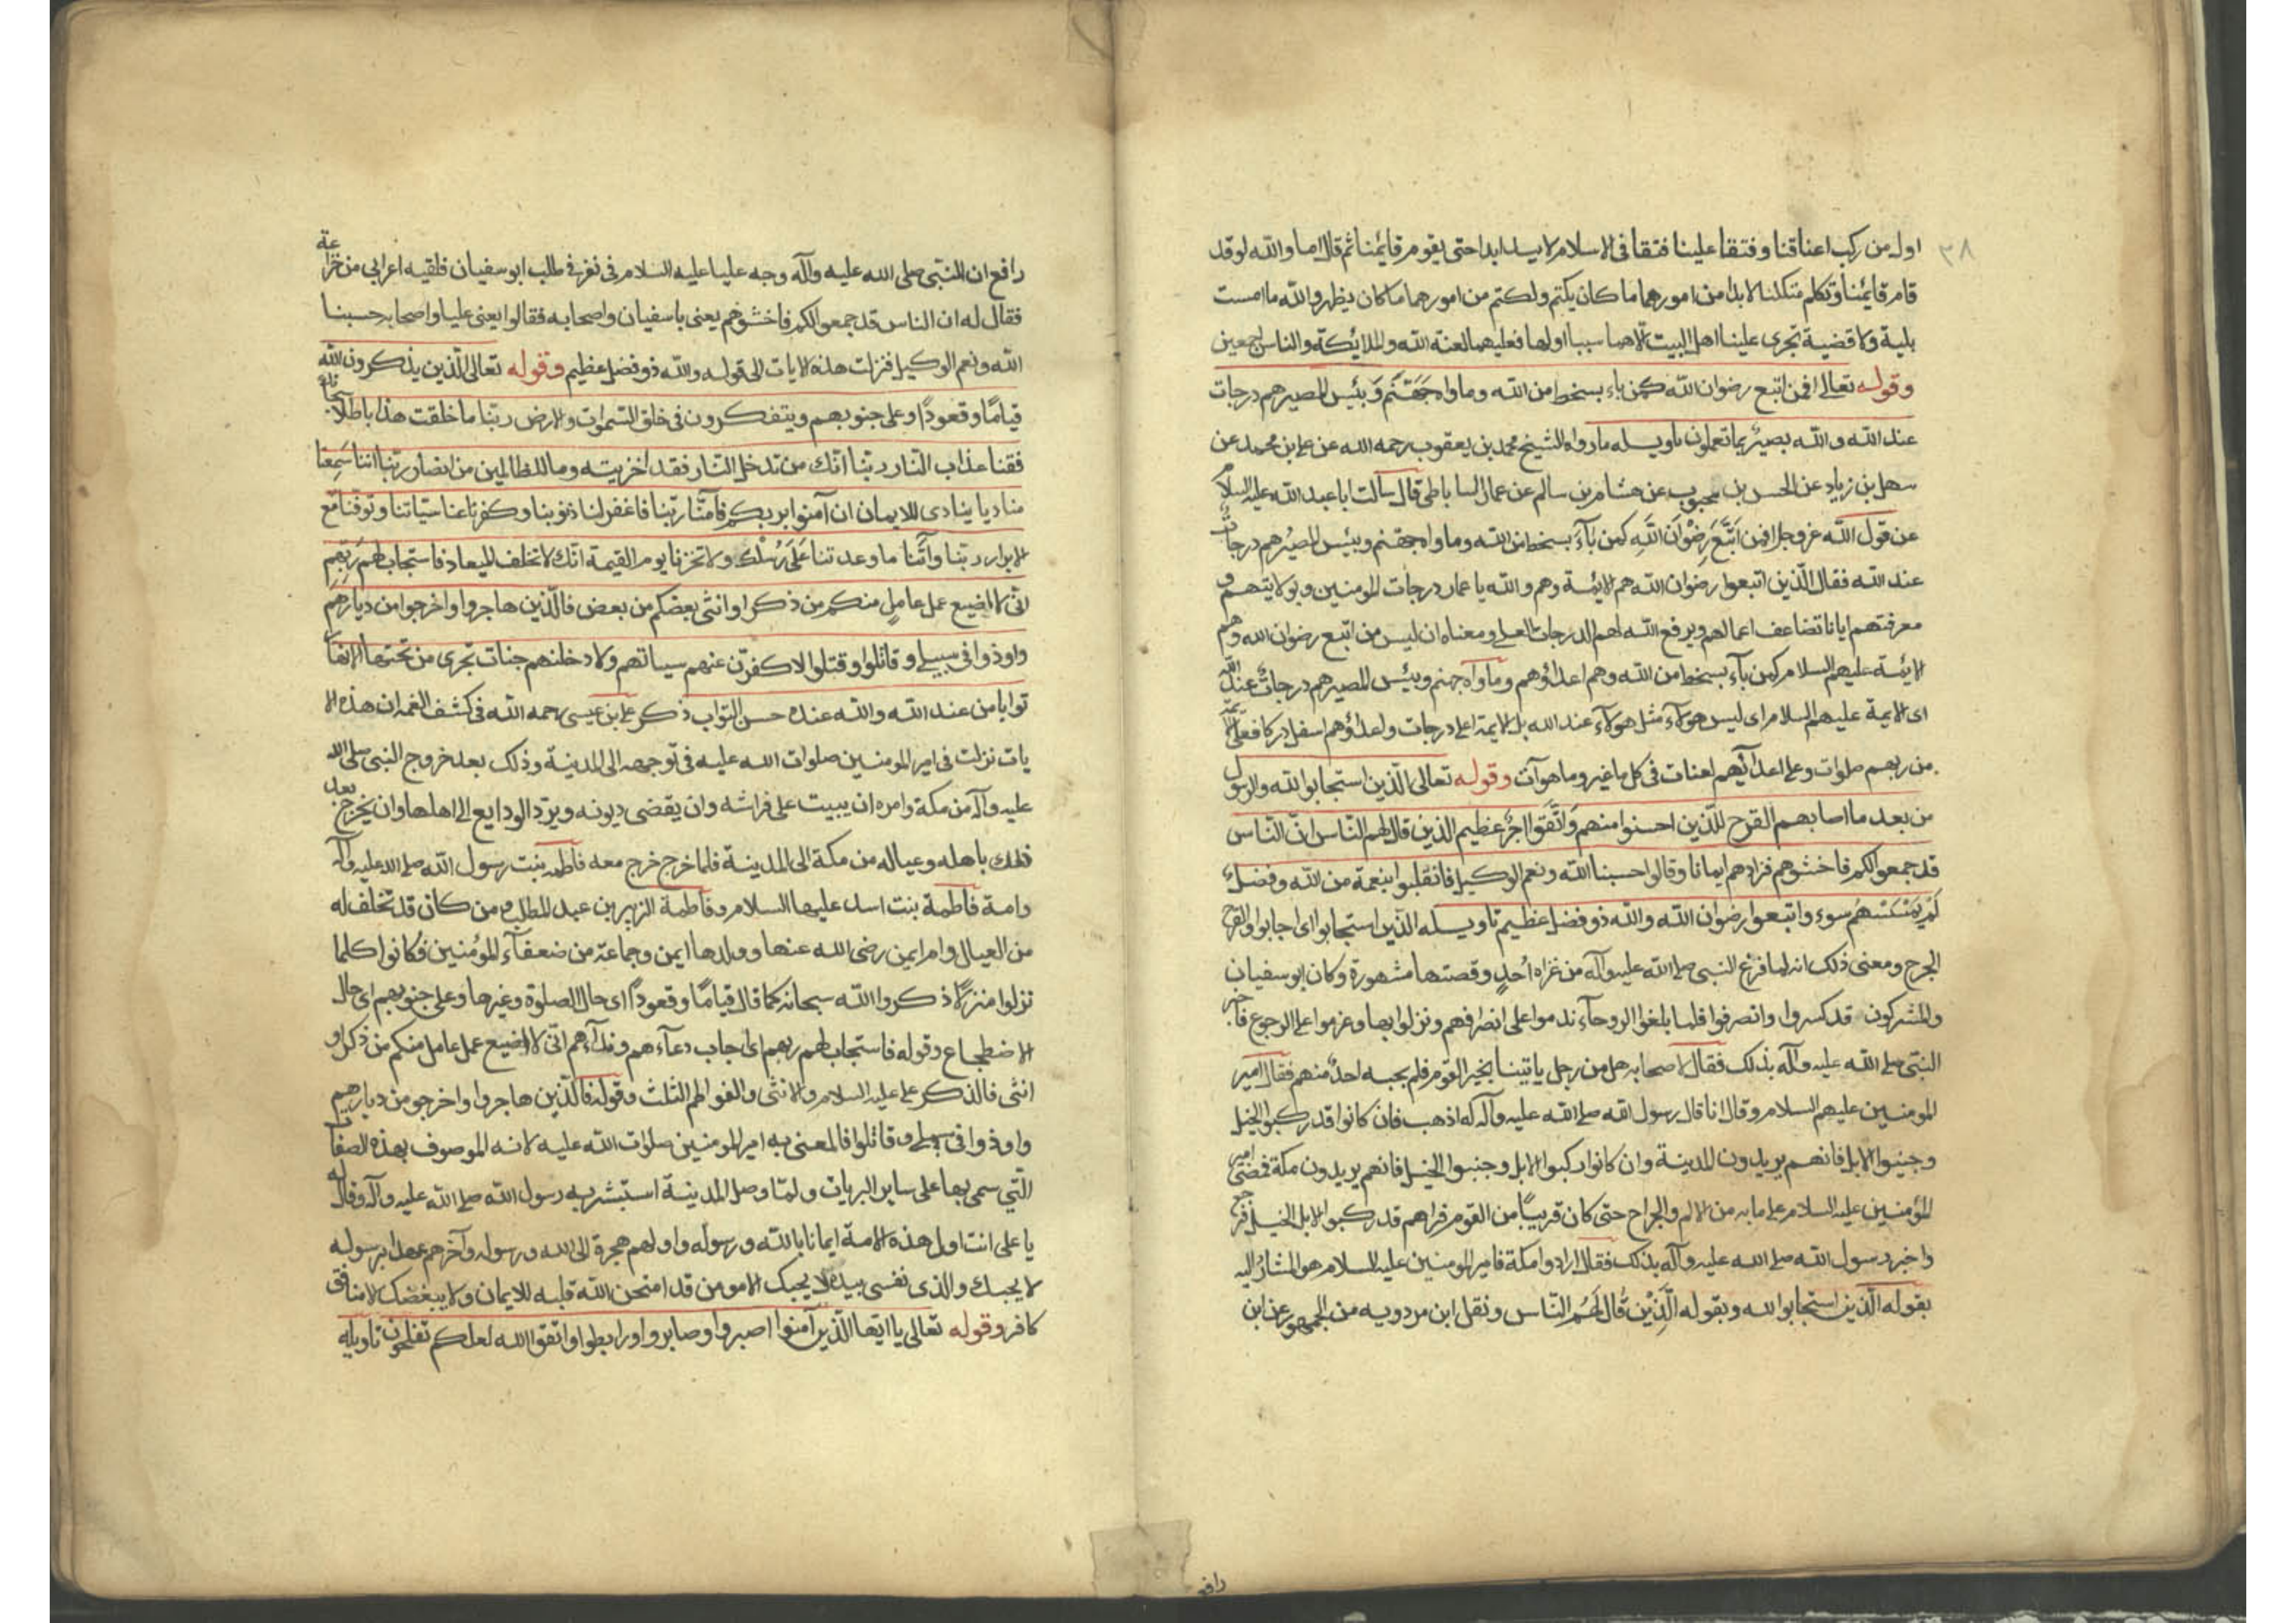 ٣٨
اول من ركب اعناقنا وفتقا علينا فتقا في الاسلام لا يسد ابدا حتى يقوم قايمنا ثم قال اما والله لو قد
قام قايمنا وتكلم متكلمنا لابدا من امورهما ما كان يكتم ولكتم من امورهما ما كان يظهر والله ما امست
بلية ولا قضية تجرى علينا اهل البيت الا هما سببا اولها فعليهما لعنة الله والملائكة والناس اجمعين
وقوله تعالى افمن اتبع رضوان الله كمن باء بسخط من الله وماواه جَهَنَّم وَبئيس المصير هم درجات
عند الله والله بصيرٌ بما تعملون تاويله ما رواه الشيخ محمد بن يعقوب رحمه الله عن علي بن محمد عن
سهل بن زياد عن الحسن بن محبوب عن هشام بن سالم عن عمار الساباطي قال سألت ابا عبد الله عليه السلام
عن قول الله عز وجل افمن اتَّبَعَ رَضْوَانَ اللَّهِ كمن بَآءَ بسخط من الله وماواه جهنم وبئيس المصيرُ هم درجاتٌ
عند الله فقال الذين اتبعوا رضوان الله هم الائمة وهم والله يا عمار درجات للمومنين وبولايتهم و
معرفتهم ايانا تضاعف اعمالهم ويرفع الله لهم الدرجات العلى ومعناه ان ليس من اتبع رضوان الله وهم
الائمة عليهم السلام كمن بآء بسخط من الله وهم اعداؤهم وماواه جهنم وبئيس المصير هم درجاتٌ عند الله
اى الايمة عليهم السلام اى ليس هولآء مثل هولآء عند الله بل الايمة اعلى درجات واعداؤهم اسفل دركا فعلى الايمة
من ربهم صلوات وعلى اعدائهم لعنات في كل ما غبر وما هو آت وقوله تعالى الذين استجابوا لله والرسول
من بعد ما اصابهم القرح للذين احسنوا منهم وَاتَّقَوا اجرٌ عظيم الذين قال لهم الناس انّ الناس
قد جمعوا لكم فاخشوهم فزادهم ايمانا وقالوا حسبنا الله ونعم الوكيل فانقلبوا بنعمة من الله وفضلٍ
لَم يَمْسَسْهُم سوء واتبعوا رضوان الله والله ذو فضل عظيم تاويله الذين استجابوا اى اجابوا والقرح
الجرح ومعنى ذلك انه لما فرغ النبي صلى الله عليه وآله من غزاه اُحدٍ وقصتها مشهورة وكان ابو سفيان
والمشركون قد كسروا وانصرفوا فلما بلغوا الروحآء ندموا على انصرافهم ونزلوا بها وعزموا على الرجوع فاخبر
النبي صلى الله عليه وآله بذلك فقال لاصحابه هل من رجل ياتينا بخبر القوم فلم يجبه احدٌ منهم فقال امير
المومنين عليهم السلام وقال انا قال رسول الله صلى الله عليه وآله له اذهب فان كانوا قد ركبوا الخيل
وجنبوا الابل فانهم يريدون المدينة وان كانوا ركبوا الابل وجنبوا الخيل فانهم يريدون مكة فمضى امير
المؤمنين عليه السلام على ما به من الالم والجراح حتى كان قريبًا من القوم فراهم قد ركبوا الابل الخيل فرجع
واخبر رسول الله صلى الله عليه وآله بذلك فقال ارادوا مكة فامير المومنين عليه السلام هو المشارُ اليه
بقوله الّذين استجابوا لله وبقوله الَّذِيْنَ قُالَ لَهُم النّاس ونقل ابن مردويه من الجمهور عن ابن
رافع
رافع ان النبي صلى الله عليه وآله وجه عليا عليه السلام في نفر في طلب ابو سفيان فلقيه اعرابي من خزاعة
فقال له ان الناس قد جمعوا لكم فاخشوهم يعني با سفيان واصحابه فقالوا يعني عليا واصحابه حسبنا
الله ونعم الوكيل فنزلت هذه الايات الى قوله والله ذو فضل عظيم وقوله تعالى الّذين يذكرون الله
قيامًا وقعودًا وعلى جنوبهم ويتفكرون في خلق السّموات والارض ربّنا ما خلقت هذا باطلًا سبحانك
فقنا عذاب النّار ربّنا انّك من تدخل النّار فقد اخزيته وما للظالمين من انصار ربّنا اننا سَمِعنا
مناديا ينادى للايمان ان آمنوا بربكم فآمنّا ربّنا فاغفر لنا ذنوبنا وكفر عنا سيّاتنا وتوفّنا مع
الابرار ربّنا وآتِنا ما وعدتنا عَلَى رُسُلْك ولا تخزنا يوم القيمة انّك لا تخلف الميعاد فاستجاب لهم رَبّهم
اَنّى لا اضيع عمل عاملٍ منكم من ذكرٍ او انثى بعضكم من بعض فالّذين هاجروا واخرجوا من ديارهم
واوذوا في سبيلى وقاتلوا وقتلوا لاكفرّن عنهم سياتهم ولادخلنهم جنات تجرى من تحتها الانهار
ثوابا من عند الله والله عنده حسن الثواب ذكر علي بن عيسى رحمه الله في كشف الغمه ان هذه الا
يات نزلت في امير المومنين صلوات الله عليه في توجهه الى المدينة وذلك بعد خروج النبي صلى الله
عليه وآله من مكة وامره ان يبيت على فراشه وان يقضى ديونه ويردّ الودايع الى اهلها وان يخرج بعد
ذلك باهله وعياله من مكة الى المدينة فلما خرج خرج معه فاطمه بنت رسول الله صلى الله عليه وآله
وامة فاطمة بنت اسد عليها السلام وفاطمة الزبير بن عبد المطلب ومن كان قد تخلف له
من العيال وام ايمن رضى الله عنها وولدها ايمن وجماعة من ضعفآء المؤمنين فكانوا كلما
نزلوا منزلًا ذكروا الله سبحانه كما قال قيامًا وقعودًا اى حال الصلوة وغيرها وعلى جنوبهم اى حال
الاضطجاع وقوله فاستجاب لهم ربهم اى اجاب دعآءهم وندآءهم انّى لا اضيع عمل عامل منكم من ذكر او
انثى فالذكر على عليه السلام والانثى والفواطم الثلث وقوله فالّذين هاجروا واخرجو من ديارهم
واوذوا في سبيلى وقاتلوا فالمعنى به امير المومنين صلوات الله عليه لانه الموصوف بهذه الصفات
التي سمى بها على ساير البريات ولمّا وصل المدينة استبشر به رسول الله صلى الله عليه وآله وقال له
يا على انت اول هذه الامة ايمانا بالله ورسوله واولهم هجرة الى الله ورسوله وآخرهم عهدا برسوله
لا يحبك والذى نفسى بيده لا يحبك الا مومن قد امتحن الله قلبه للايمان ولا يبغضك الا منافق
كافر وقوله تعالى يا ايّها الّذين آمنوا اصبروا وصابروا ورابطوا واتقوا الله لعلكم تفلحون تاويله